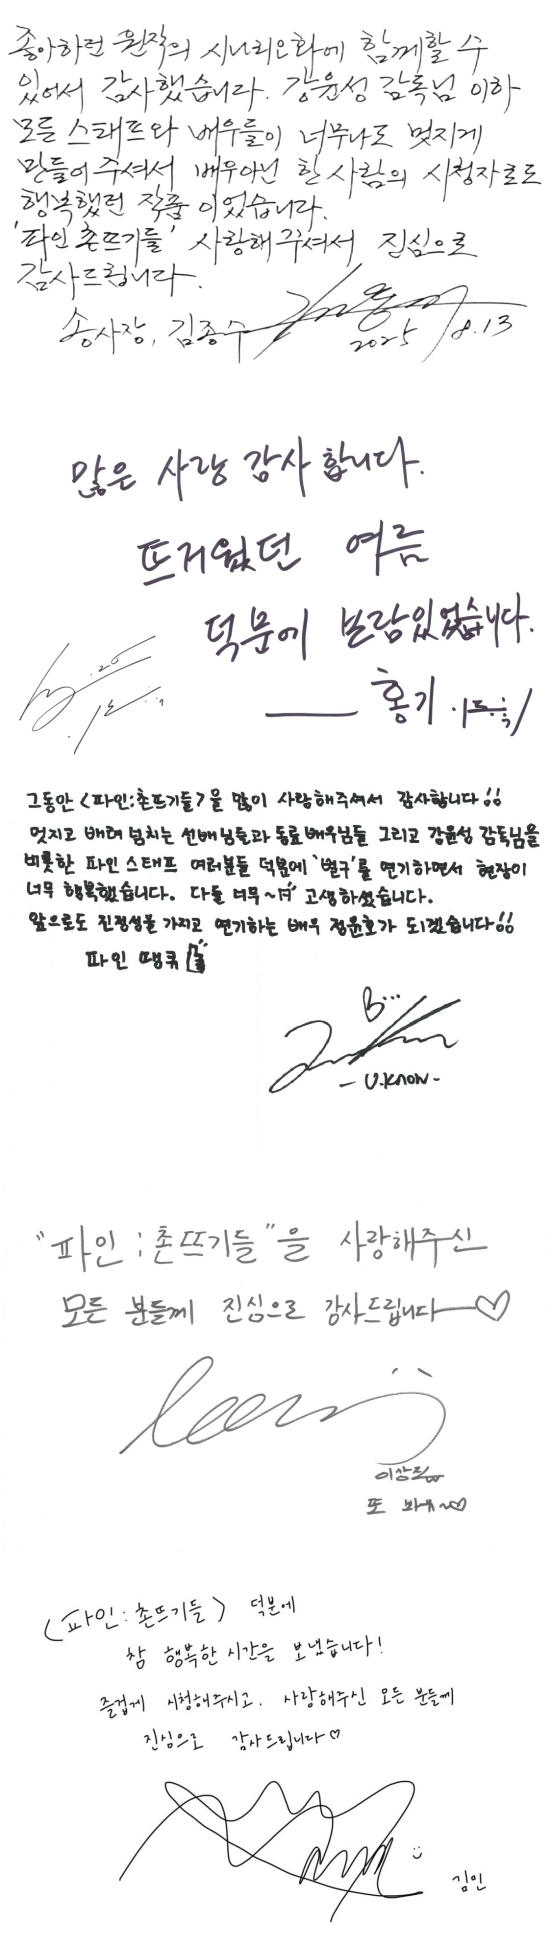 좋아하던 원작의 시나리오화에 함께할 수
있어서 감사했습니다. 강윤성 감독님 이하
모든 스태프와 배우들이 너무나도 멋지게
만들어 주셔서 배우아닌 한 사람의 시청자로도
행복했던 작품 이었습니다.
'파인 촌뜨기들' 사랑해주셔서 진심으로
감사드립니다.
송사장, 김종수
2025 8.13
많은 사랑 감사 합니다.
뜨거웠던 여름
덕분에 보람있었습니다.
홍기
그동안 <파인:촌뜨기들>을 많이 사랑해주셔서 감사합니다!!
멋지고 배려 넘치는 선배님들과 동료배우님들 그리고 강윤성 감독님을
비롯한 파인 스태프 여러분들 덕분에 '벌구'를 연기하면서 현장이
너무 행복했습니다. 다들 너무~ 고생하셨습니다.
앞으로도 진정성을 가지고 연기하는 배우 정윤호가 되겠습니다!!
파인 땡큐
- U.KNOW -
"파인 : 촌뜨기들"을 사랑해주신
모든 분들께 진심으로 감사드립니다 ♡
이상진
또 봐유~♡
<파인: 촌뜨기들> 덕분에
참 행복한 시간을 보냈습니다!
즐겁게 시청해주시고, 사랑해주신 모든 분들께
진심으로 감사드립니다♡
김민